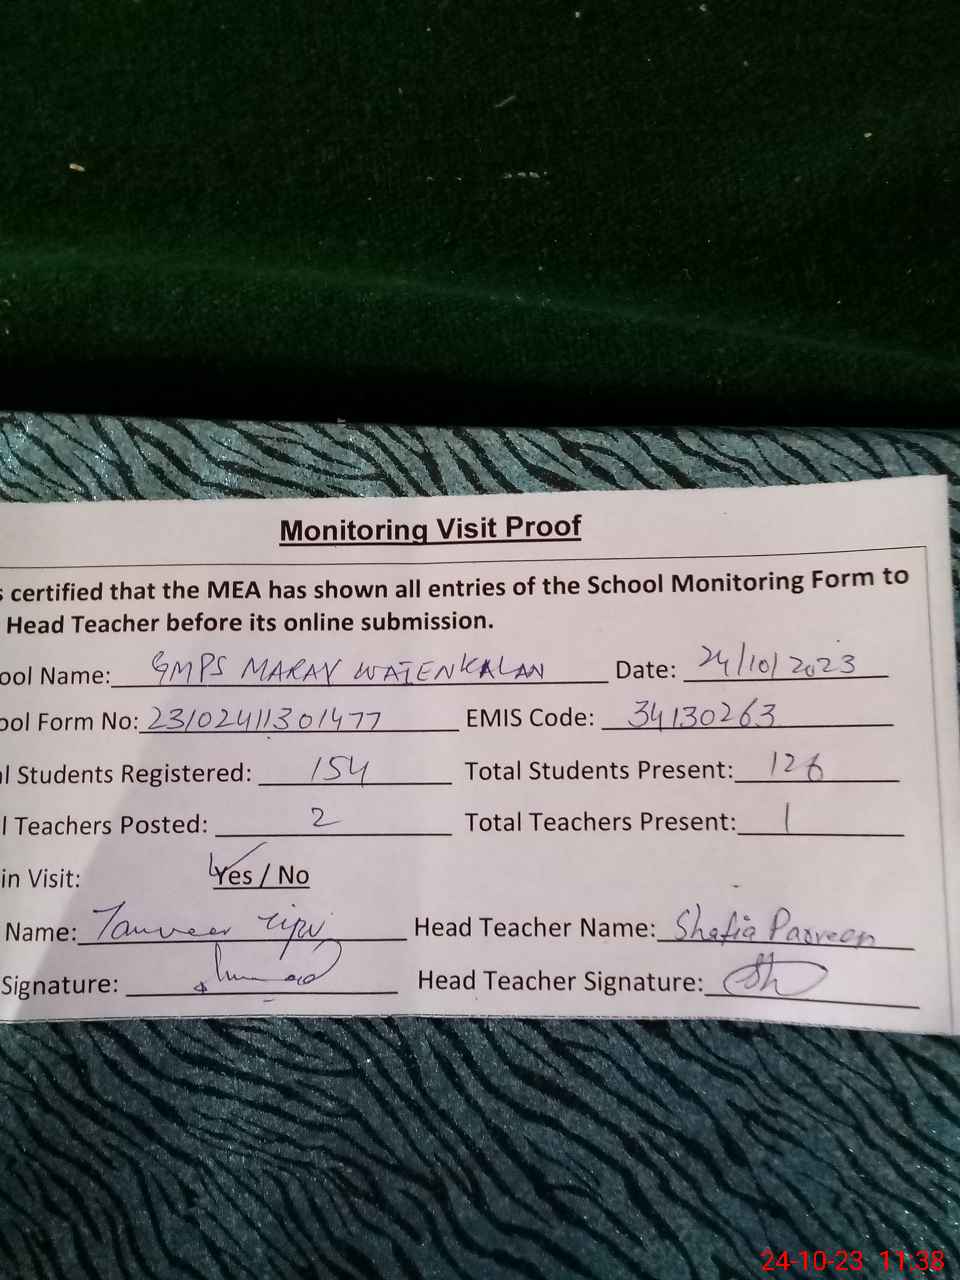 Monitoring Visit Proof
s certified that the MEA has shown all entries of the School Monitoring Form to
Head Teacher before its online submission.
ool Name: GMPS MARAY WAIENKALAN Date: 24/10/2023
ool Form No: 23102411301477 EMIS Code: 34130263
l Students Registered: 154 Total Students Present: 126
l Teachers Posted: 2 Total Teachers Present: 1
in Visit: Yes / No
Name: Tanveer Head Teacher Name: Shafia Parveen
Signature: Head Teacher Signature: Sh
24-10-23 11:38